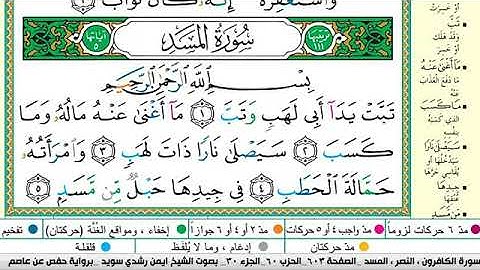 وَاسْتَغْفِرْهُ إِنَّهُ كَانَ تَوَّابًا
ترتيبها ١١١
سُورَةُ المَسَد
آياتها ٥
بِسْمِ اللَّهِ الرَّحْمَٰنِ الرَّحِيمِ
تَبَّتْ يَدَآ أَبِي لَهَبٍ وَتَبَّ ١ مَآ أَغْنَىٰ عَنْهُ مَالُهُ وَمَا
كَسَبَ ٢ سَيَصْلَىٰ نَارًا ذَاتَ لَهَبٍ ٣ وَامْرَأَتُهُ
حَمَّالَةَ الْحَطَبِ ٤ فِي جِيدِهَا حَبْلٌ مِّن مَّسَدٍ ٥
أو خسرت
تَبَّ
وقد هلك
أو خسر
مَا أَغْنَىٰ عَنْهُ
ما دفع العذاب
عنه
مَا كَسَبَ
الذي كسبه
بنفسه
سَيَصْلَىٰ نَارًا
سيدخلها أو
يقاسي حرها
جِيدِهَا
مدّ ٦ حركات لزوماً
مدّ واجب ٤ أو ٥ حركات
مدّ ٢ أو ٤ أو ٦ جوازاً
إخفاء، ومواقع الغُنَّة (حركتان)
تفخيم
مدّ حركتان
إدغام، وما لا يُلفَظ
قلقلة
سورة الكافرون ، النصر ، المسد _الصفحة ٦٠٣_ الحزب ٦٠_ الجزء ٣٠_ بصوت الشيخ ايمن رشدي سويد _ برواية حفص عن عاصم